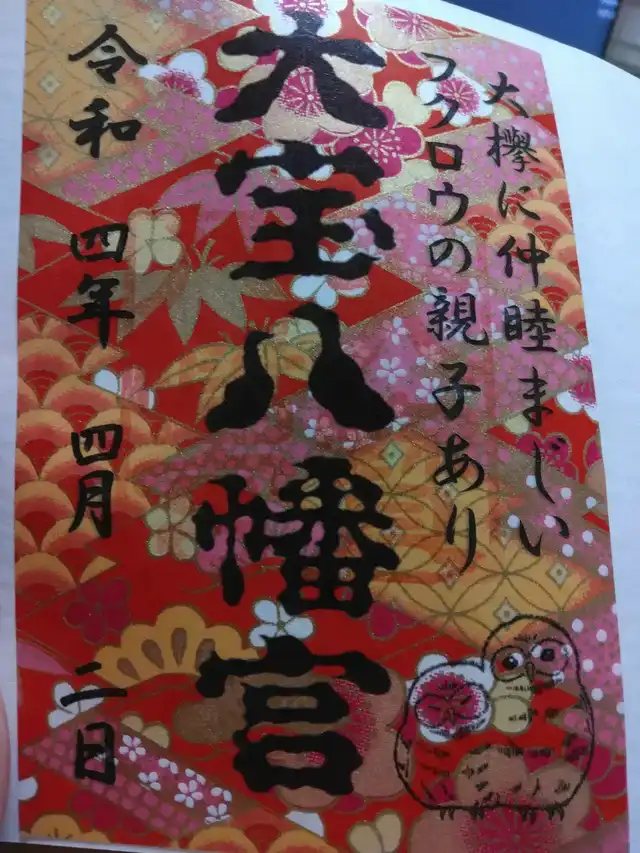 大欅に仲睦まじい
フクロウの親子あり
大宝八幡宮
令和四年四月二日